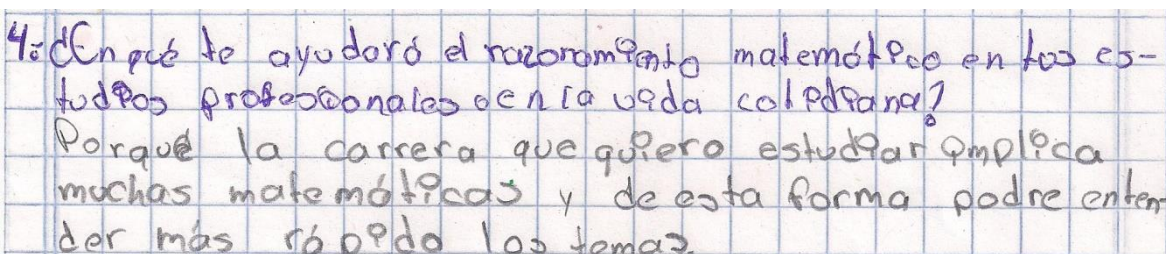 4: ¿En qué te ayudará el razonamiento matemático en tus es-
tudios profesionales o en la vida cotidiana?
Porque la carrera que quiero estudiar implica
muchas matemáticas y de esta forma podre enten-
der más rápido los temas.